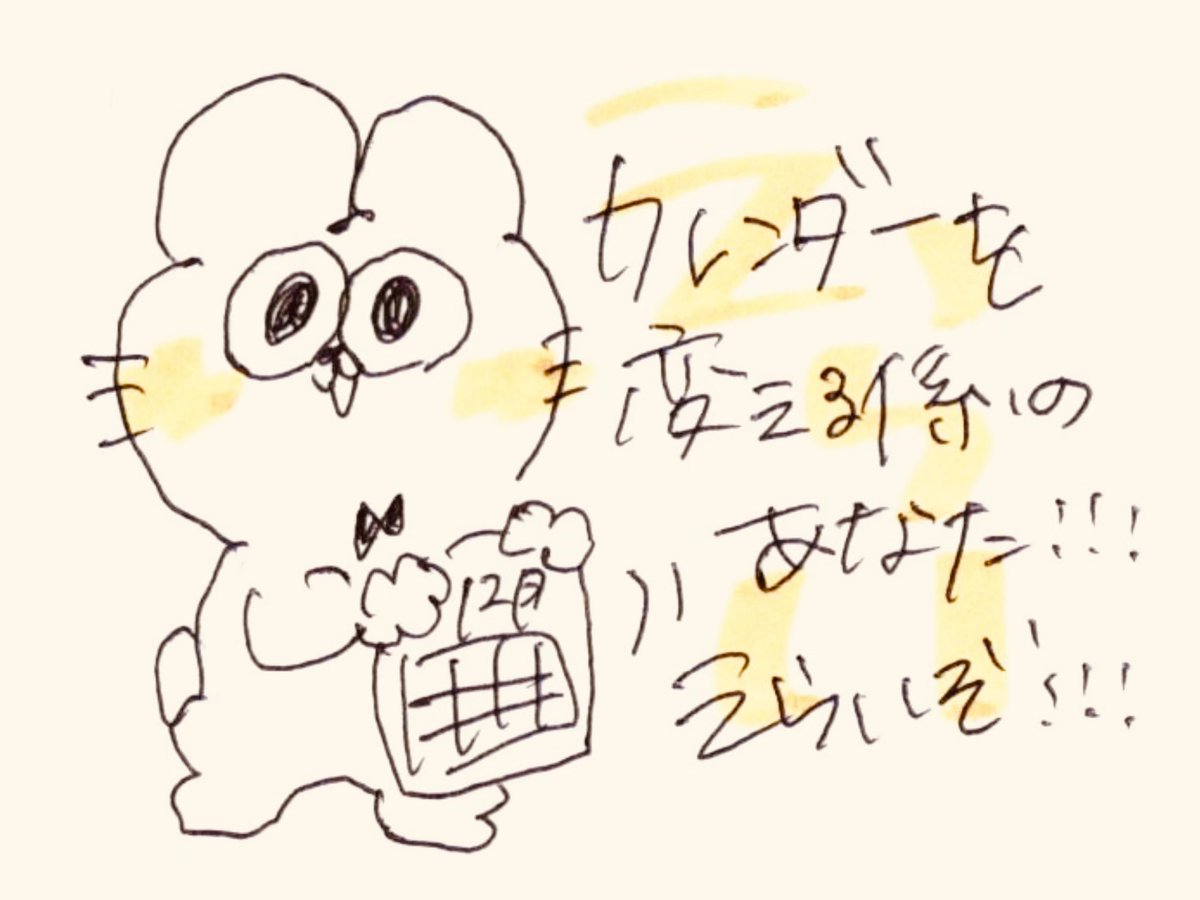 カレンダーを
変える係の
あなた!!!
えらいぞ!!!
12月